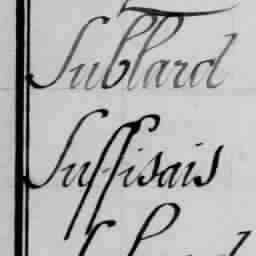 Sublard
Suffisais